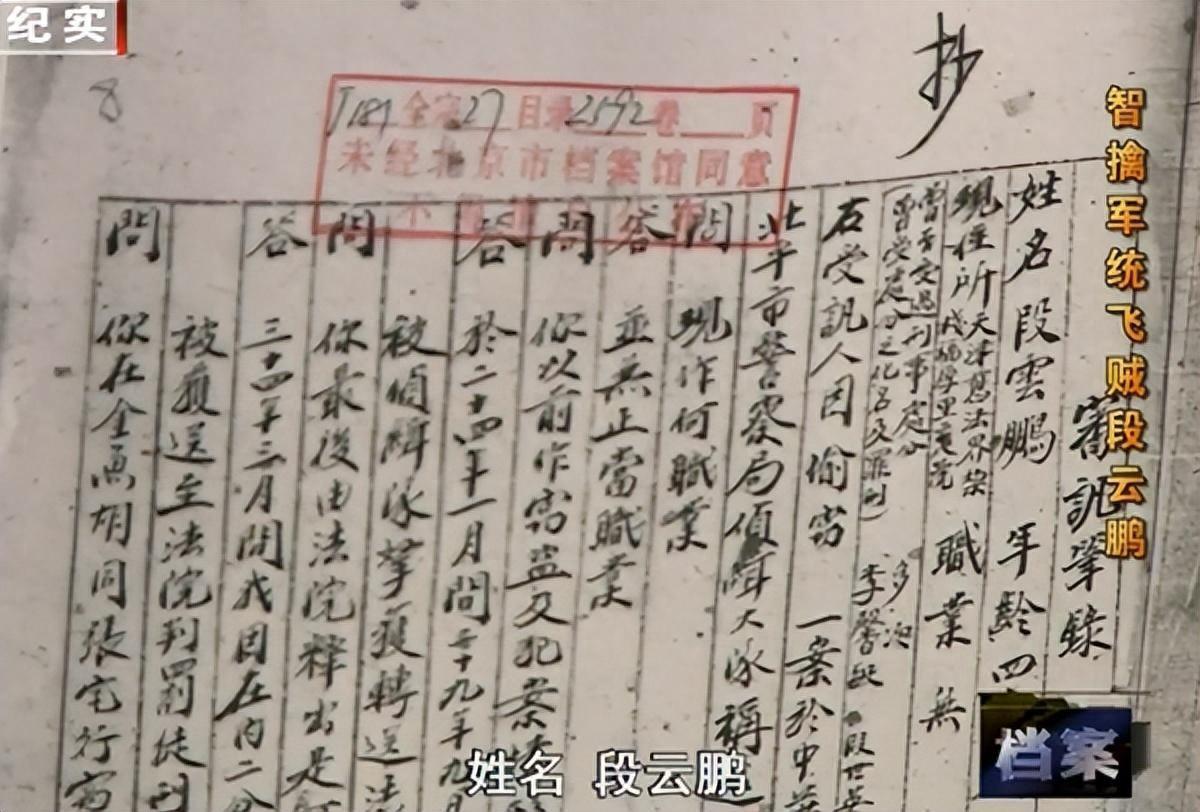 纪实
抄
8
智擒军统飞贼段云鹏
全宗27目录2592卷 頁
未经北京市档案馆同意
審訊筆錄
姓名段雲鵬 年齡四
現住所天津 法界 職業 無
曾否受過刑事處分
(曾受處分之化名及罪刑)
李
右受訊人因偷窃 一案於中華
北平市警察局偵緝大隊稱
問 現作何職業
答 並無正當職業
問 你以前作窃盗及犯案
答 於二十四年十一月間 十九年九月
被偵緝隊拏獲轉送法
問 你最後由法院釋出是
答 三十四年三月間我因在内二分
被獲送至法院判罰徒刑
問 你在全画胡同張宅行窃
档案
姓名 段云鹏